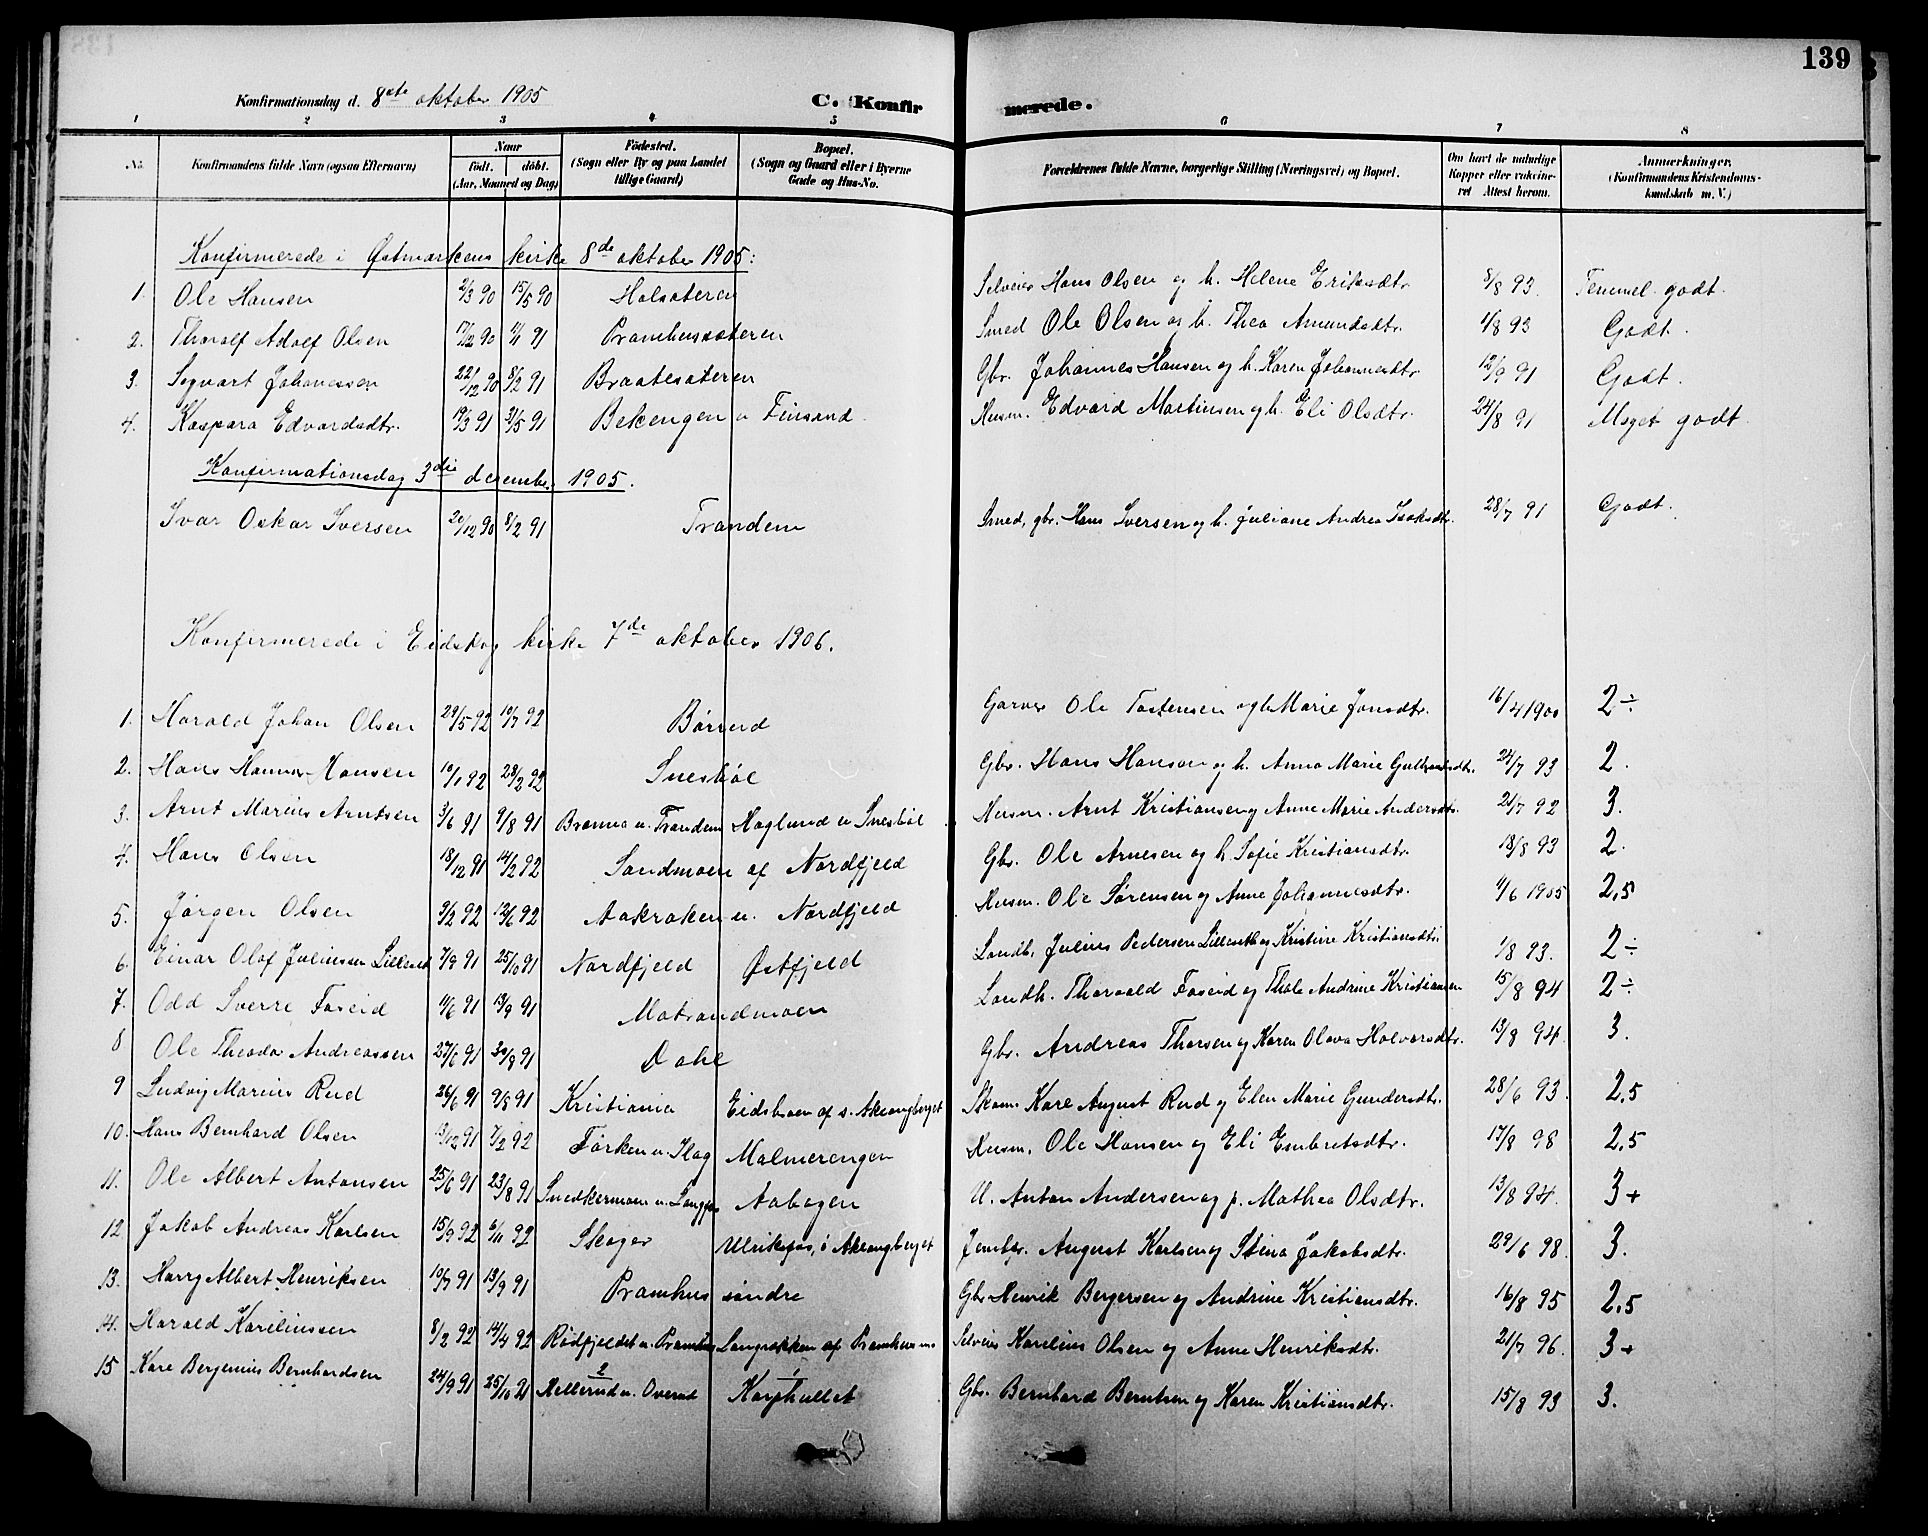 139
Konfirmationsdag d. 8de oktober 1905 C. Konfirmerede.
1 2 3 4 5 6 7 8
No. Konfirmandens fulde Navn (ogsaa Efternavn) Naar født. døbt. (Aar, Maaned og Dag) Fødested. (Sogn eller By og paa Landet tillige Gaard) Bopæl. (Sogn og Gaard eller i Byerne Gade og Hus-No. Forældrenes fulde Navne, borgerlige Stilling (Næringsvei) og Bopæl. Om havt de naturlige Kopper eller vakcineret Attest herom. Anmærkninger. (Konfirmandens Kristendomskundskab m. V.)
Konfirmerede i Østmarkens kirke 8de oktober 1905:
1. Ole Hansen 2/3 90 15/5 90 Holsæteren Selveier Hans Olsen og h. Helene Eriksdtr. 8/8 93. Temmel. godt.
2. Tharalf Adolf Olsen 17/12 90 1/1 91 Pramhussæteren Smed Ole Olsen og h. Thea Amundsdtr. 4/8 93 Godt.
3. Sigvart Johanessen 22/12 90 8/2 91 Braatesæteren Gbr. Johannes Hansen og h. Karen Johannesdtr. 12/9 91 Godt.
4. Kaspara Edvardsdtr. 19/3 91 31/5 91 Bekengen u Finsand. Husm. Edvard Martinsen og h. Eli Olsdtr. 24/8 91 Meget godt
Konfirmationsdag 3die december 1905.
Ivar Oskar Iversen 20/12 90 8/2 91 Trandem Smed, gbr. Hans Iversen og h. Juliane Andrea Isaksdtr. 28/7 91 Godt.
Konfirmerede i Eidskog kirke 7de oktober 1906.
1. Harald Johan Olsen 29/5 92 10/7 92 Børrud Garver Ole Tostensen og h Marie Jonsdtr. 16/4 1900 2÷
2. Hans Hansen 10/1 92 28/2 92 Snesbøl Gbr. Hans Hansen og h. Anna Marie Gulbrandsdtr. 24/7 93 2.
3. Arnt Marius Arntsen 3/6 91 9/8 91 Brænna u. Trandem Haglund u Snesbøl Husm. Arnt Kristiansen og Anne Marie Andersdtr. 21/7 92 3.
4. Hans Olsen 18/12 91 14/2 92 Sandmoen af Nordfjeld Gbr. Ole Arnesen og h. Sofie Kristiansdtr. 18/8 93 2.
5. Jørgen Olsen 9/2 92 12/6 92 Aakroken u. Nordfjeld Husm. Ole Sørensen og Anne Johannesdtr. 11/6 1905 2,5
6. Einar Olaf Juliussen Lilleseth 7/9 91 25/10 91 Nordfjeld Østfjeld Landh. Julius Pedersen Lilleseth og Kristine Kristiansdtr. 1/8 93. 2÷
7. Odd Sverre Foseid 11/6 91 13/9 91 Matrandmoen Landh. Thorvald Foseid og Thala Andrine Kristiansen 15/8 94 2÷
8 Ole Theodor Andreassen 27/6 91 30/8 91 Dahl Gbr. Andreas Thorsen og Karen Olava Halvorsdtr. 13/8 94 3.
9 Ludvig Marius Rud 26/6 91 9/8 91 Kristiania Eidsbraen af s. Aklangberget Skom. Karl August Rud og Elen Marie Gundersdtr. 28/6 93. 2,5
10. Hans Bernhard Olsen 13/12 91 7/2 92 Førken u. Flag Malmerengen Husm. Ole Hansen og Eli Embretsdtr. 17/8 98 2,5
11. Ole Albert Antonsen 25/6 91 23/8 91 Snedkermoen u. Aabogen U. Anton Andersen og p. Mathea Olsdtr. 13/8 94. 3+
12 Jakob Andreas Karlsen 15/9 92 6/11 92 Skoger Ulriksfos, i Aklangberget August Karlsen og Stina Jakobsdtr. 29/6 98. 3.
13. Harry Albert Henriksen 10/7 91 13/9 91 Pramhus søndre Gbr Henrik Bergersen og Andrine Kristiansdtr. 16/8 95 2,5
14. Harald Kareliussen 8/2 92 14/4 92 Rødfjeldet u. Pramhus Langrækken af Pramhus Selveier Karelius Olsen og Anne Henriksdtr. 21/7 96. 3+
15 Karl Bergenius Bernhardsen 24/9 91 25/10 91 Kellerud u. Overud Karphullet Gbr. Bernhard Berntsen og Karen Kristiansdtr. 15/8 93 3.